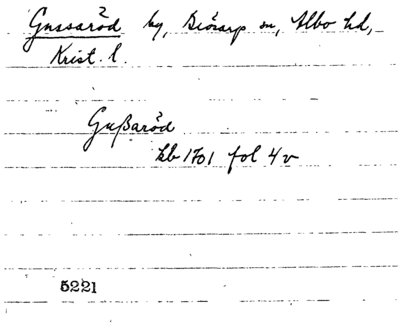 Gussaröd by, Brösarp sn, Albo hd,
Krist. l.
Gußaröd
kb 1701 fol 4 v
5221